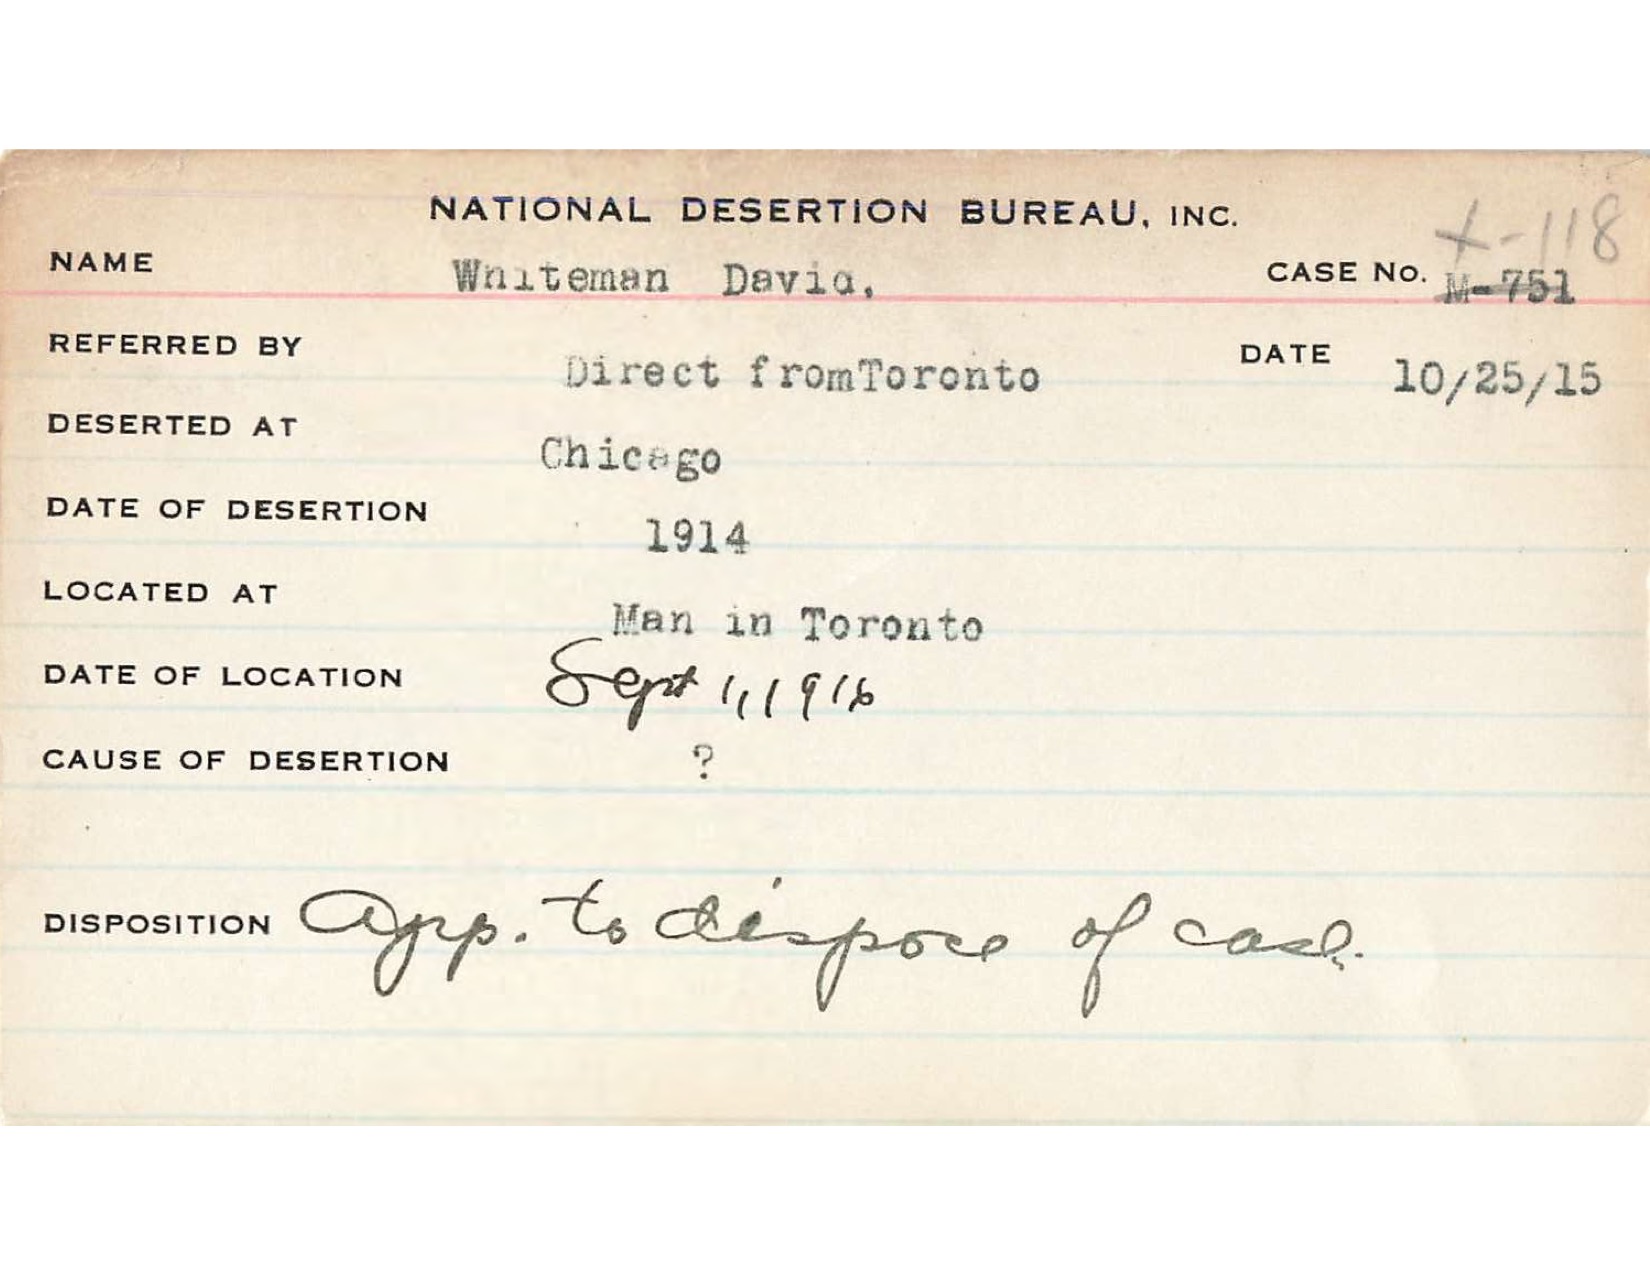 NATIONAL DESERTION BUREAU, INC.
X-118
NAME Whiteman David. CASE No. M-751
REFERRED BY Direct fromToronto DATE 10/25/15
DESERTED AT Chicago
DATE OF DESERTION 1914
LOCATED AT Man in Toronto
DATE OF LOCATION Sept 1, 1916
CAUSE OF DESERTION ?
DISPOSITION App. to dispose of case.